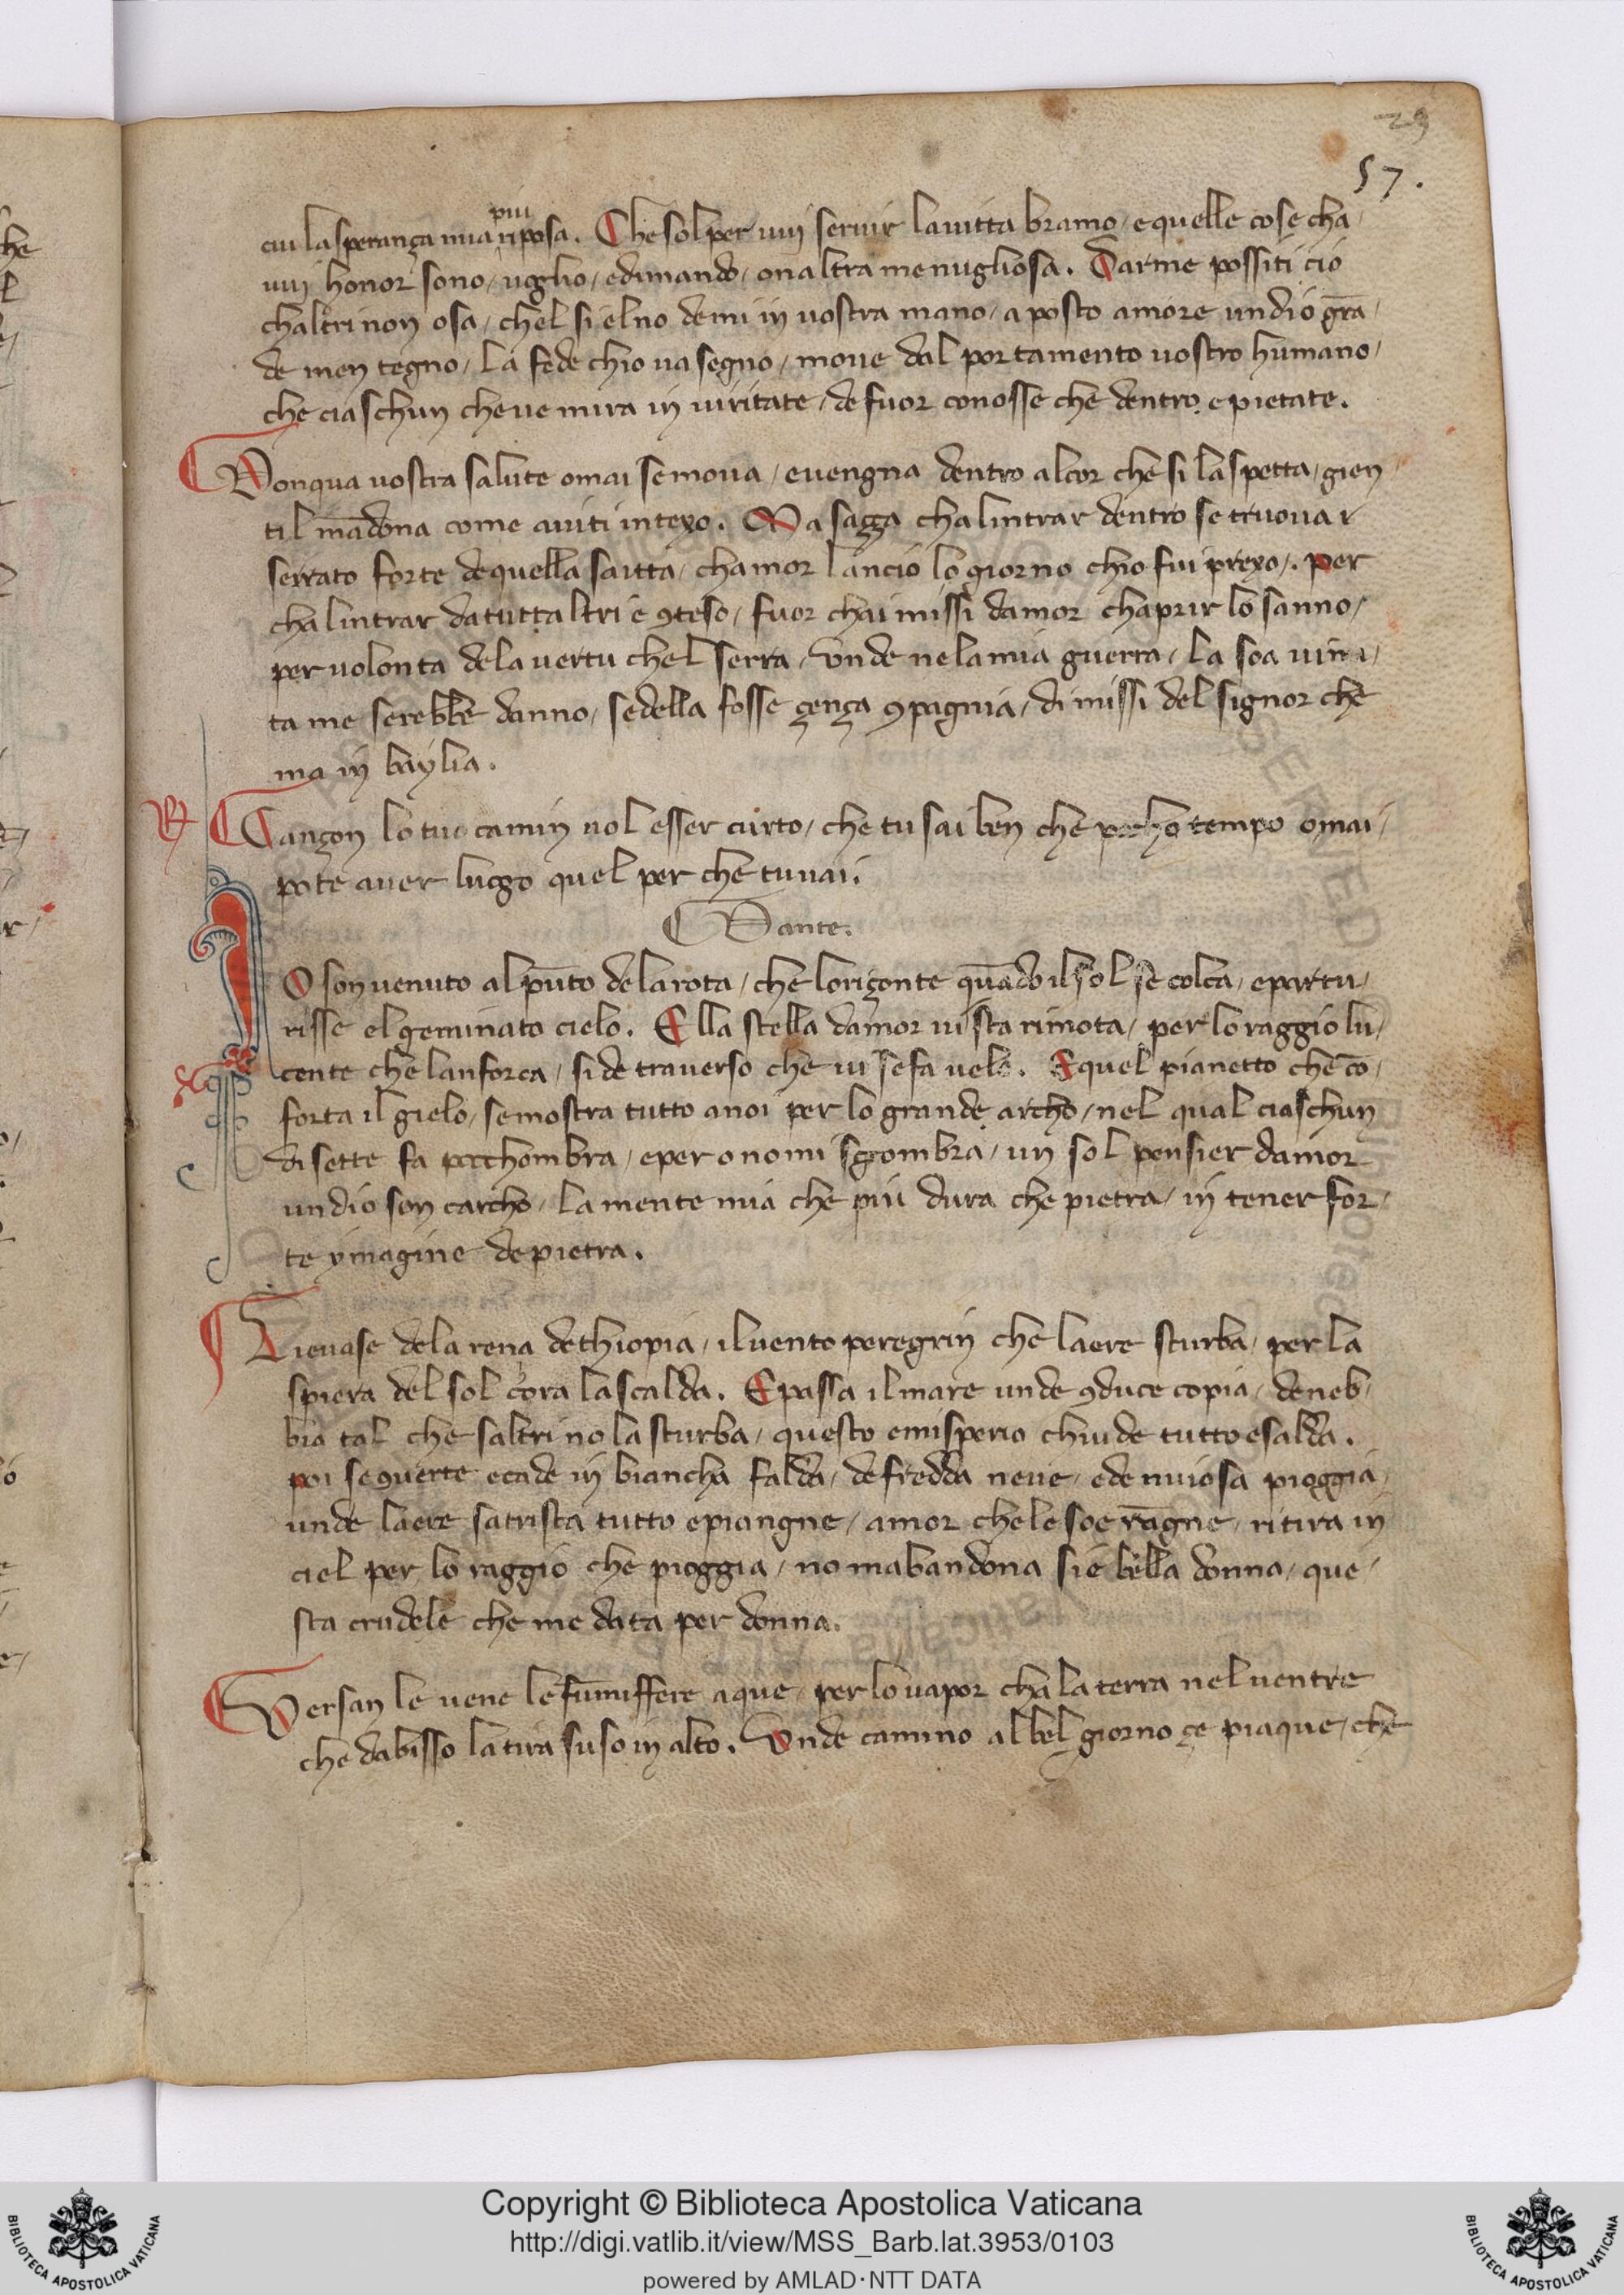 29
57.
piu
cui la sperança mia riposa. Che sol per vui servir la vitta bramo / e quelle cose cha /
vui honor sono / voglio / e dimando / on altra me nugliosa. Darme possiti ciò
chaltri non osa / chel si el no de mi in vostra mano / a posto amore undio grā /
de men tegno / la fede chio va segno / move dal portamento vostro humano /
che ciaschun che ve mira in viritate / de fuor conosse che dentro e pietate.
Donqua vostra salute omai se mova / e vengna dentro al cor che si laspetta / gien
til mādona come aviti intexo. Ma saça chalintrar dentro se truova i
serrato forte de quella saitta / chamor lancio lo giorno chio fui prexo /. per
chalintrar da tuttaltri è 9teso / fuor chai missi damor chaprir lo sanno /
per volonta de la vertu chel serra / Unde ne la mia guerra / la soa vinu /
ta me serebbe danno / se della fosse çença 9pagnia / di missi del signor che
ma in baylia.
Cançon lo tuo camin vol esser curto / che tu sai ben che pocho tempo omai /
po te aver luogo quel per che tu vai.
Dante.
Io son venuto al pūto de la rota / che loriçonte quādo il sol se colca / e partu /
risse el geminato cielo. Ella stella damor vi sta rimota / per lo raggio lu /
cente che lanforca / si de traverso che vi se fa velo. E quel pianetto che cō /
forta il gielo / se mostra tutto a noi per lo grande archo / nel qual ciaschun
di sette fa pocchombra / e pero no mi sgombra / un sol pensier damor
undio son carcho / la mente mia che piu dura che pietra / in tener for /
te ymagine de pietra.
Lievase de la rena dethiopia / il vento peregrin che laere sturba / per la
spiera del sol cora la scalda. E passa il mare unde 9duce copia / de neb /
bia tal che saltri no la sturba / questo emisperio chiude tutto e salda.
poi se 9verte e cade in biancha falda / de fredda neve / e de nuiosa pioggia /
unde laere satrista tutto e piangne / amor che le soe rāgne / ritira in
ciel per lo raggio che pioggia / no mabandona si è bella donna / que /
sta crudele che me data per donna.
Versan le vene le fumiffere aque / per lo vapor cha la terra nel ventre
che dabisso la tira suso in alto. Unde camino al bel giorno çe piaque / che
Copyright © Biblioteca Apostolica Vaticana
http://digi.vatlib.it/view/MSS_Barb.lat.3953/0103
powered by AMLAD·NTT DATA
BIBLIOTECA APOSTOLICA VATICANA
BIBLIOTECA APOSTOLICA VATICANA